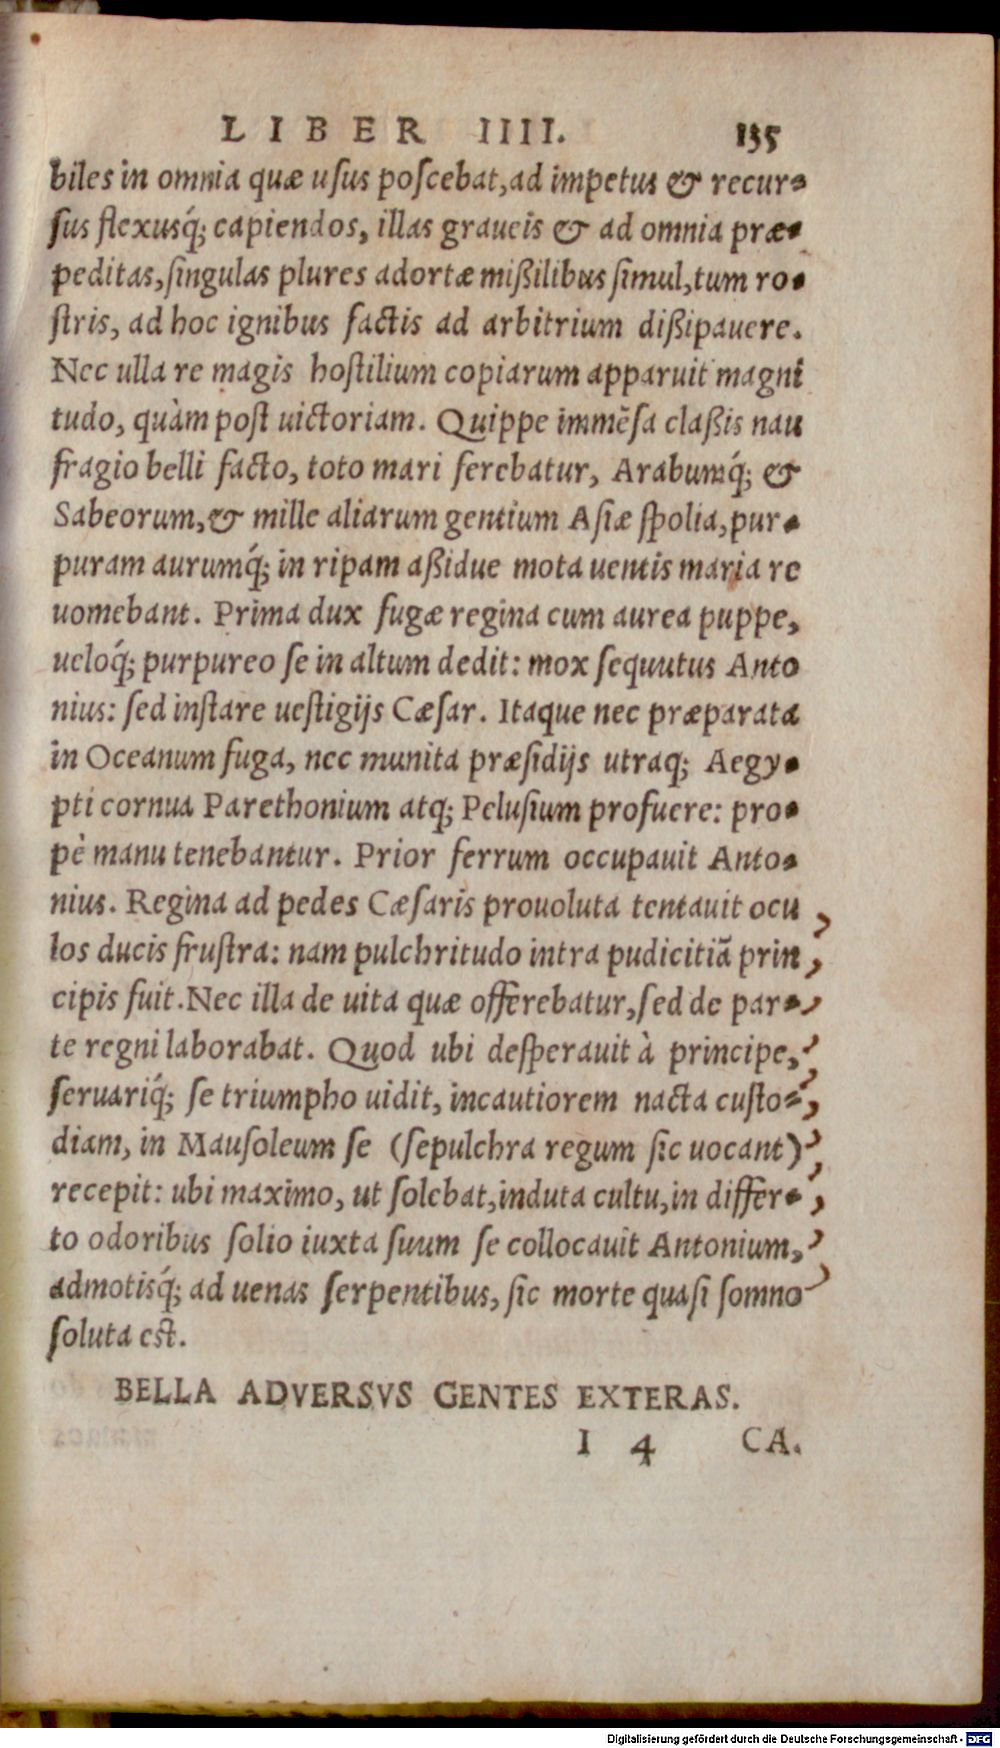 LIBER IIII. 135
biles in omnia quæ uſus poſcebat, ad impetus & recur-
ſus flexusq́; capiendos, illas graueis & ad omnia præ-
peditas, ſingulas plures adortæ mißilibus ſimul, tum ro-
ſtris, ad hoc ignibus factis ad arbitrium dißipauere.
Nec ulla re magis hoſtilium copiarum apparuit magni
tudo, quàm poſt uictoriam. Quippe immēſa claßis nau
fragio belli facto, toto mari ferebatur, Arabumq́; &
Sabeorum, & mille aliarum gentium Aſiæ ſpolia, pur-
puram aurumq́; in ripam aßidue mota uentis maria re
uomebant. Prima dux fugæ regina cum aurea puppe,
ueloq́; purpureo ſe in altum dedit: mox ſequutus Anto
nius: ſed inſtare ueſtigijs Cæſar. Itaque nec præparata
in Oceanum fuga, nec munita præſidijs utraq; Aegy-
pti cornua Parethonium atq; Peluſium profuere: pro-
pè manu tenebantur. Prior ferrum occupauit Anto-
nius. Regina ad pedes Cæſaris prouoluta tentauit ocu
los ducis fruſtra: nam pulchritudo intra pudicitiā prin
cipis fuit. Nec illa de uita quæ offerebatur, ſed de par-
te regni laborabat. Quod ubi deſperauit à principe,
ſeruariq́; ſe triumpho uidit, incautiorem nacta cuſto-
diam, in Mauſoleum ſe (ſepulchra regum ſic uocant)
recepit: ubi maximo, ut ſolebat, induta cultu, in differ-
to odoribus ſolio iuxta ſuum ſe collocauit Antonium,
admotisq́; ad uenas ſerpentibus, ſic morte quaſi ſomno
ſoluta eſt.
BELLA ADVERSVS GENTES EXTERAS.
I 4 CA.
Digitalisierung gefördert durch die Deutsche Forschungsgemeinschaft - DFG